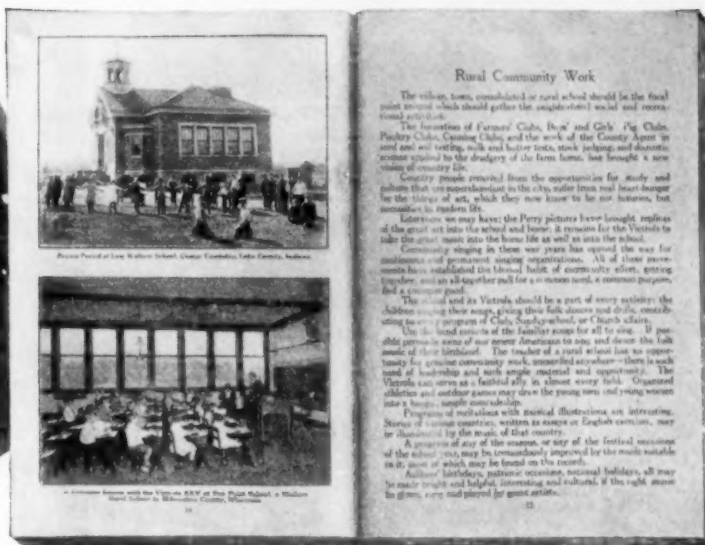 Recess Period at Lew Wallace School, Lake County, Indiana
Lesson with the Victrola XXV at Fox Point School, a Modern
Rural School in Milwaukee County, Wisconsin
14
Rural Community Work
The village, town, consolidated or rural school should be the focal
point around which should gather the neighborhood social and recrea-
tional activities.
The formation of Farmers' Clubs, Boys' and Girls' Pig Clubs,
Poultry Clubs, Canning Clubs, and the work of the County Agent in
seed and soil testing, milk and butter tests, stock judging, and domestic
science applied to the drudgery of the farm home, has brought a new
vision of country life.
Country people removed from the opportunities for study and
culture that are superabundant in the city, suffer from real heart-hunger
for the things of art, which they now know to be not luxuries, but
necessities in modern life.
Literature we may have; the Perry pictures have brought replicas
of the great art into the school and home; it remains for the Victrola to
take the great music into the home life as well as into the school.
Community singing in these war years has opened the way for
continuous and permanent singing organizations. All of these move-
ments have established the blessed habit of community effort, getting
together, and an all-together pull for a common need, a common purpose,
and a common good.
The school and its Victrola should be a part of every activity; the
children singing their songs, giving their folk dances and drills, contrib-
uting to every program of Club, Sunday-school, or Church affairs.
Use the band records of the familiar songs for all to sing. If pos-
sible persuade some of our newer Americans to sing and dance the folk
music of their birthland. The teacher of a rural school has an oppor-
tunity for genuine community work, unexcelled anywhere—there is such
need of leadership and such ample material and opportunity. The
Victrola can serve as a faithful ally in almost every field. Organized
athletics and outdoor games may draw the young men and young women
into a happy, simple comradeship.
Programs of recitations with musical illustrations are interesting.
Stories of various countries, written as essays or English exercises, may
be illuminated by the music of that country.
A program of any of the seasons, or any of the festival occasions
of the school year, may be tremendously improved by the music suitable
to it, most of which may be found on the records.
Authors' birthdays, patriotic occasions, national holidays, all may
be made bright and helpful, interesting and cultural, if the right music
be given, sung and played by great artists.
15